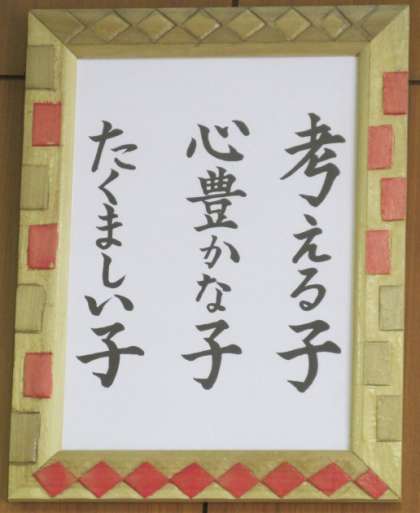 考える子
心豊かな子
たくましい子